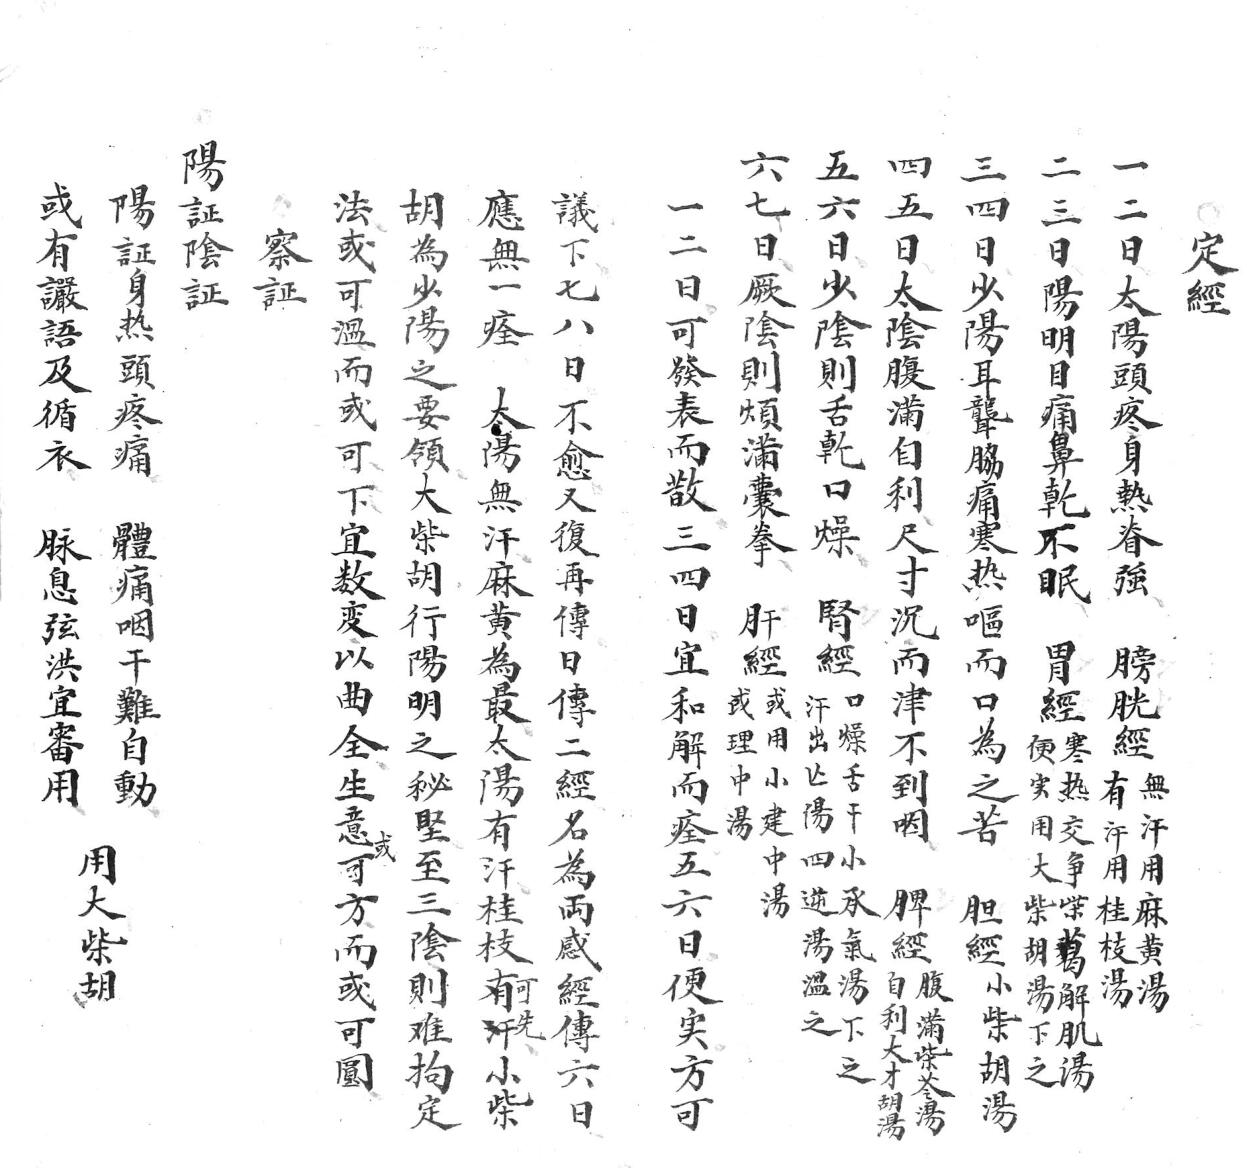 定經
一二日太陽頭疼身熱脊強　膀胱經
無汗用麻黄湯
有汗用桂枝湯
二三日陽明目痛鼻乾不眠　胃經
寒热交争柴葛解肌湯
便实用大柴胡湯下之
三四日少陽耳聾脇痛寒热嘔而口為之苦　胆經
小柴胡湯
四五日太陰腹滿自利尺寸沉而津不到咽　脾經
腹滿柴苓湯
自利大才胡湯
五六日少陰則舌乾口燥　腎經
口燥舌干小承氣湯下之
汗出亡陽四逆湯温之
六七日厥陰則煩滿囊拳　肝經
或用小建中湯
或理中湯
一二日可發表而散三四日宜和解而痊五六日便实方可
議下七八日不愈又復再傳日傳二經名為両感經傳六日
應無一痊　太陽無汗麻黄為最太陽有汗桂枝可先有汗小柴
胡為少陽之要領大柴胡行陽明之秘堅至三陰則难拘定
法或可温而或可下宜数変以曲全生意或可方而或可圓
察証
陽証陰証
陽証身热頭疼痛　體痛咽干難自動
或有讝語及循衣　脉息弦洪宜審用
用大柴胡